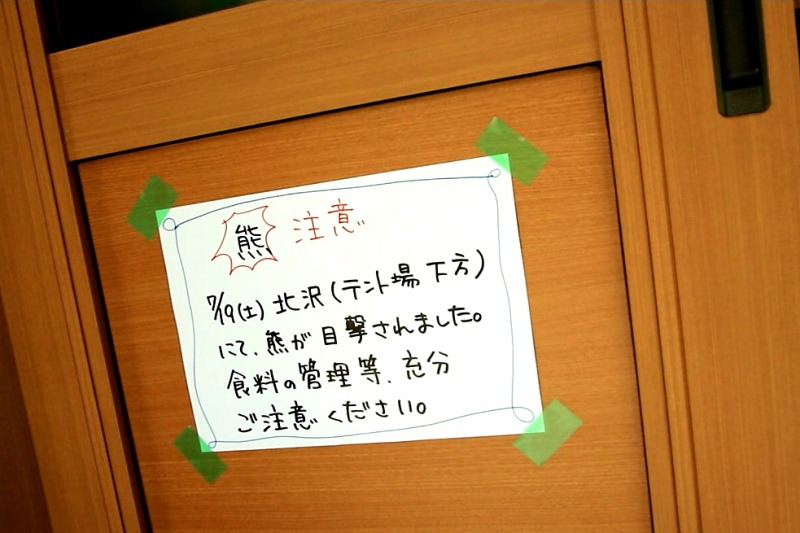 熊 注意
7/19(土) 北沢(テント場 下方)
にて、熊が目撃されました。
食料の管理等、充分
ご注意ください。